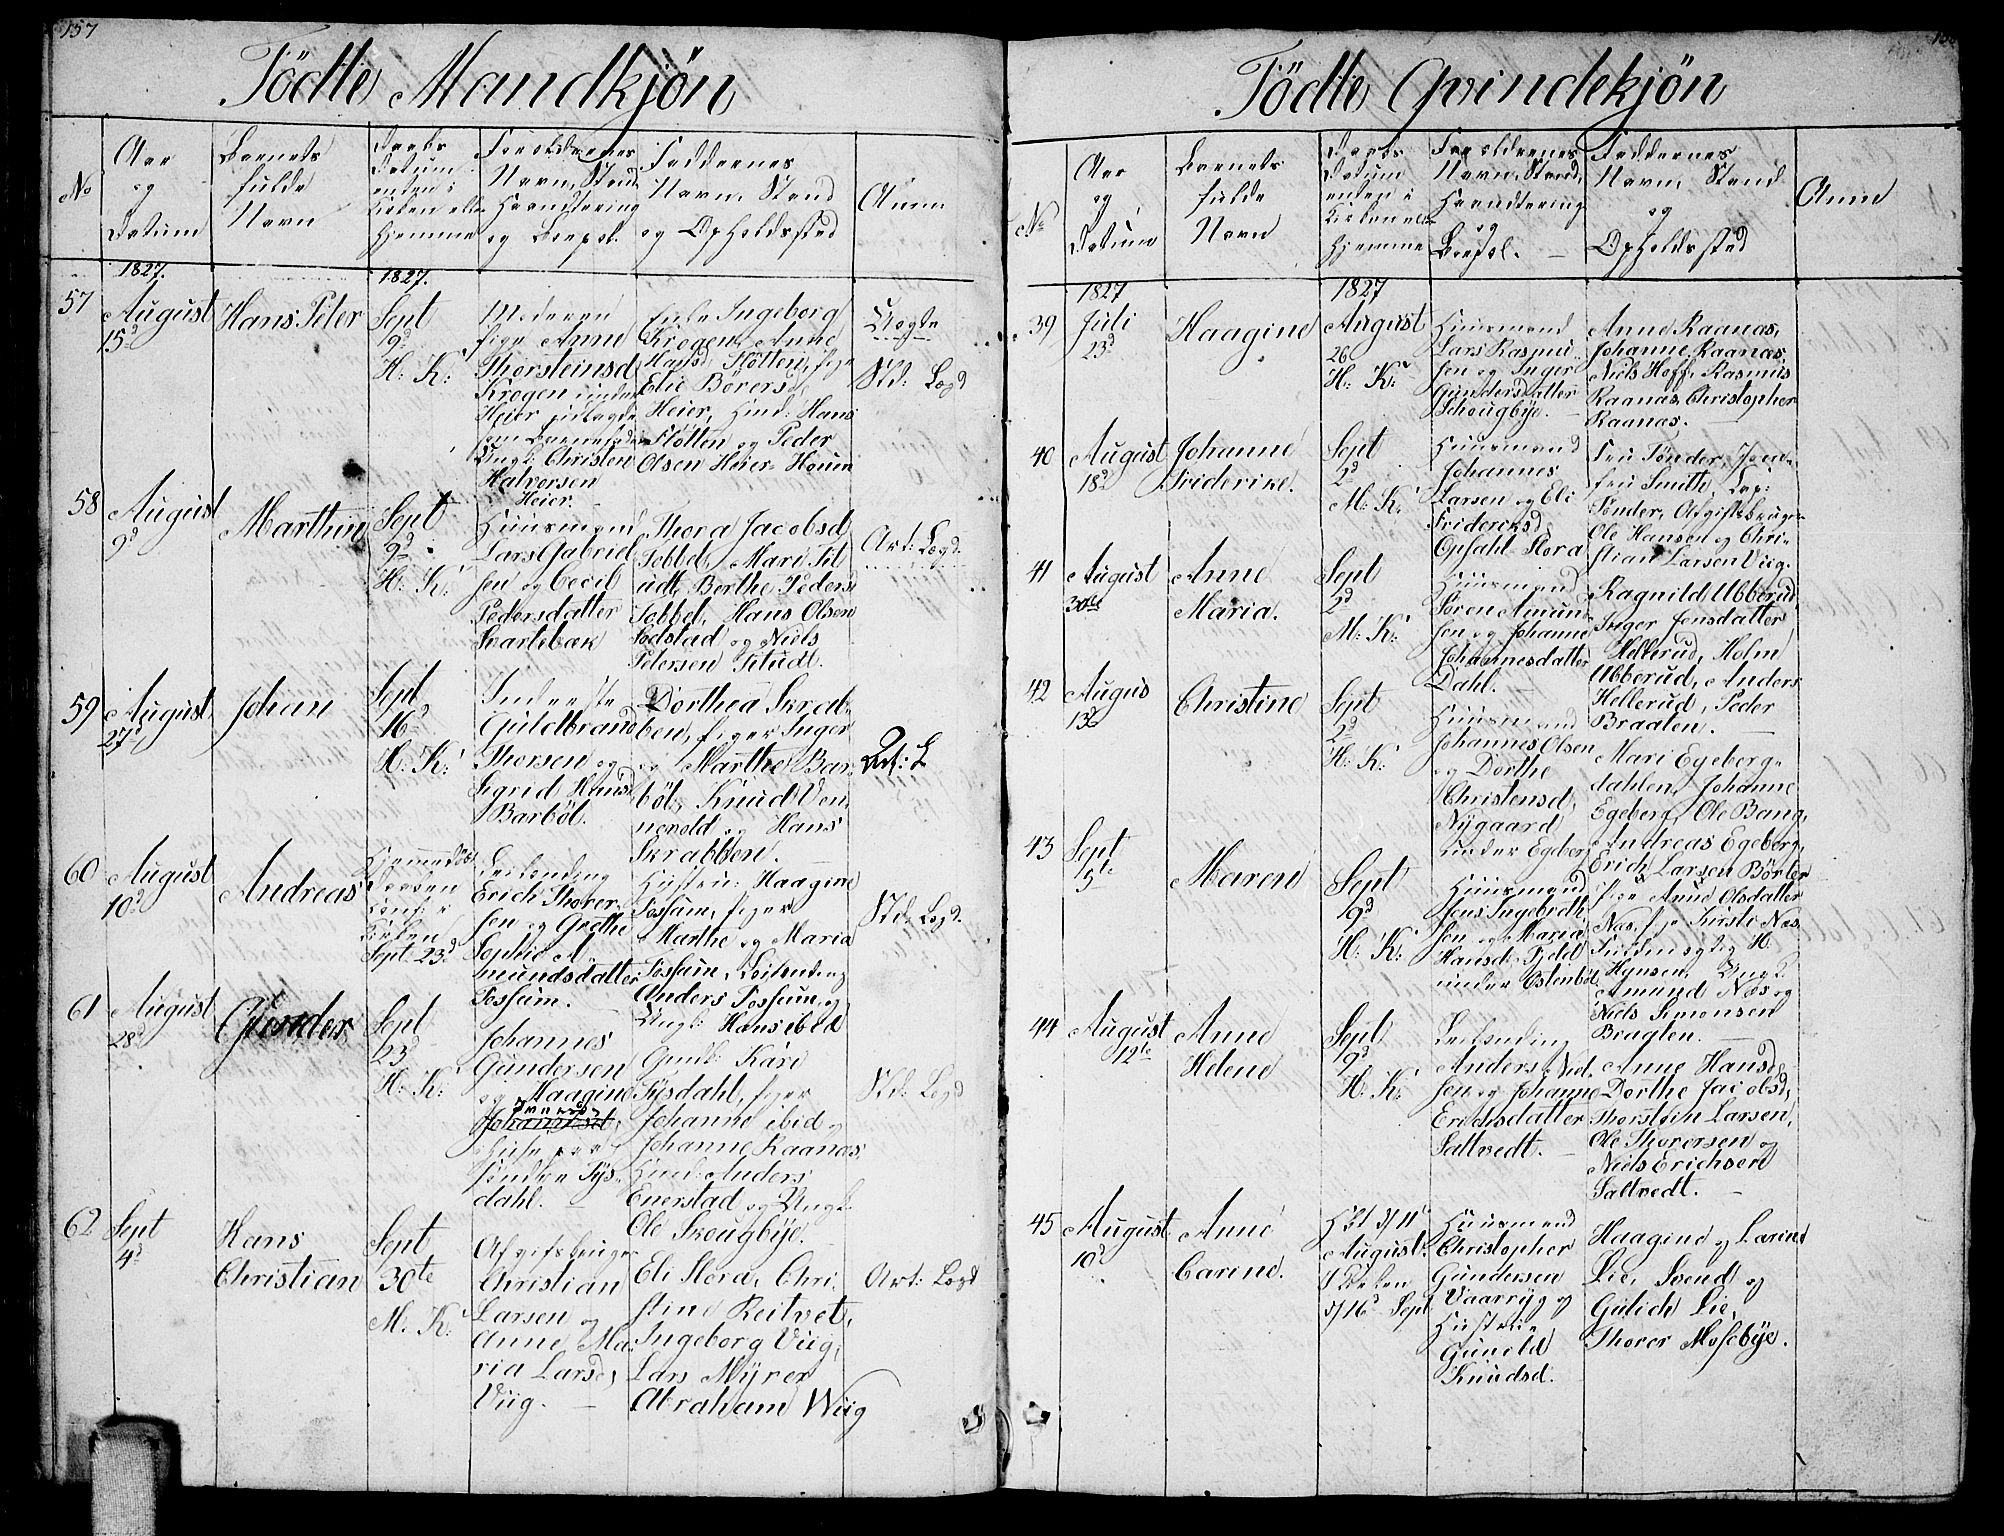 157
Födte Mandkjön
No
Aar
og
Datum
Barnets
fulde
Navn
Daabs
Datum
enten i
Kirken eller
hjemme
Forældrenes
Navn, Stand
Haandtering
og Boepæl.
Faddernes
Navn, Stand
og Opholdssted
Anm
1827.
1827.
57
August
15d
Hans Peter
Sept
9d
H: K:
Moderen
pige Anne
Thorsteinsd
Krogen under
Heier udlagde
som Barnefader
Ungk: Christen
Halvorsen
Heier.
Enke Ingeborg
Krogen, Anne
Hansd Slötten, pige
Elie Börersd
Heier, Huusd: Hans
Slötten og Peder
Olsen Heier
Uægte
Std: Lægd
58
August
9d
Marthin
Sept
9d
H: K:
Huusmand
Lars Gabriel
sen og Cecil
Pedersdatter
Svartebæk
Thora Jacobsd
Sobbel, Mari Tit
udt, Berthe Peders
Sobbel, Hans Olsen
Sodstad og Niels
Petersen Titudt.
Art: Lægd.
59
August
27d
Johan
Sept
16d
H: K:
Inderste
Guldbrand
Thorsen og
Sigrid Hansd
Barböl.
Dorthea Skrab-
ben, piger Inger
og Marthe Bar-
böl, Knud Ven-
nevold og Hans
Skrabben.
Art: L
60
August
10d
Andreas
Hjemmedöbt
Daaben
Conf: i
Kirken
Sept 23d
Leilending
Erich Thorer-
sen og Grethe
Sophie A-
mundsdatter
Fossum.
Hustru: Haagine
Fossum, piger
Marthe og Maria
Fossum, Leilending
Anders Fossum, og
Ungk: Hans ibid
Std: Lægd.
61
August
28d
Gunder
Sept
23d
H: K:
Johannes
Gundersen
og Haagine
Johannesd,
Huusfolk
Tÿs-
dahl.
Gudb: Kari
Tÿsdahl, piger
Johanne ibid og
Johanne Raanas,
Huusd: Anders
Enerstad og Ungk:
Ole Skougbÿe.
Std: Lægd
62
Sept
4d
Hans
Christian
Sept
30te
M: K:
Afgiftsbruger
Christian
Larsen og
Anne Ma-
ria Larsd,
Viig.
Eli Stora, Chri-
stine Reitvet,
Ingeborg Viig,
Lars Mÿrer
Abraham Wiig
Art: Lægd
Födte Qvindekjön
No
Aar
og
Datum
Barnets
fulde
Navn
Daabs
Datum
enten i
Kirken eller
hjemme
Forældrenes
Navn, Stand,
Haandtering
og
Boepæl.
Faddernes
Navn, Stand
og
Opholdssted
Anm
1827
1827
39
Juli
23d
Haagine
August
26
H: K:
Huusmand
Lars Rasmu-
sen og Inger
Gundersdatter
Schougbÿe.
Anne Raanas,
Johanne Raanas,
Niels Hoff, Rasmus
Raanas, Christopher
Raanas.
40
August
18d
Johanne
Friderike.
Sept
2d
M: K:
Huusmand
Johannes
Larsen og Eli
Fridericksd,
Opsahl Stora
Fru Tönder, Jom-
fru Smith, Cap:
Tönder, Afgiftsbruger
Ole Hansen og Chri-
stian Larsen Viig.
41
August
30te
Anne
Maria.
Sept
2d
M: K:
Huusmand
Sören Amund-
sen og Johanne
Johannesdatter
Dahl.
Ragnild Ubberud,
Inger Jensdatter
Hellerud, Holm
Ubberud, Anders
Hellerud, Peder
Braaten.
42
Augus
13d
Christine
Sept
2d
H: K:
Huusmand
Johannes Olsen
og Dorthe
Christensd,
Nÿgaard
under Egeberg
Mari Egeberg-
dahlen, Johanne
Egeberg, Ole Bang,
Andreas Egeberg,
Erich Larsen Börter
43
Sept
5te
Maren
Sept
9d
H: K:
Huusmand
Jens Ingebreth-
sen og Maria
Hansd: Fjeld
under Östenböl
Pige Anne Olsdatter
Næs, pige Kirsti Næs,
Hÿnsen, Ungk:
Amund Næs og
Niels Simonsen
Bragten.
44
August
12te
Anne
Helene
Sept
9d
H: K:
Leilending
Anders Niel-
sen og Johanne
Erichsdatter
Saltvedt.
Anne Hansd,
Dorthe Jacobsd,
Thorstein Larsen,
Ole Thorersen og
Niels Erichsen
Saltvedt.
45
August
10d
Anne
Carine.
Hbt d/11
August.
I Kirken
d/16d Sept
Huusmand
Christopher
Gundersen
Vaarrÿg og
Hustrue
Gunild
Knudsd.
Haagine og Karine
Lie, Svend og
Gulich Lie,
Thorer Mosebÿe.